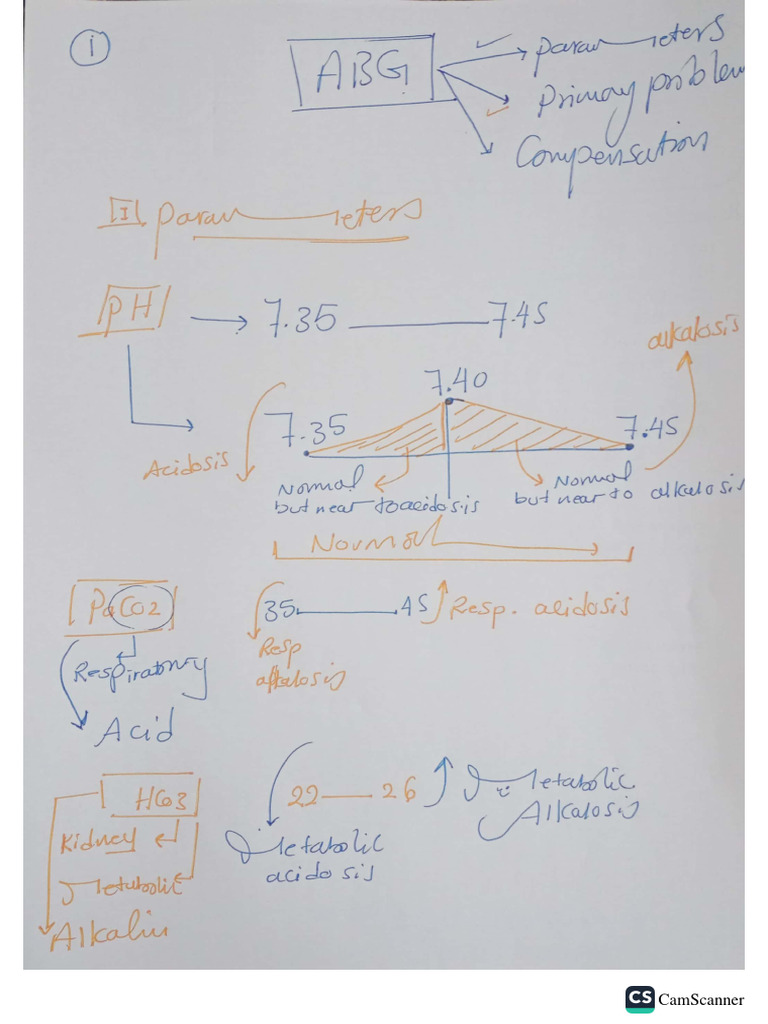 1
ABG
parameters
Primary problem
Compensation
I parameters
PH → 7.35 — 7.45
7.40
alkalosis
7.35
7.45
Acidosis
Normal
but near to acidosis
Normal
but near to alkalosis
Normal
PaCO2
35 — 45 Resp. acidosis
Resp
alkalosis
Respiratory
Acid
HCO3
22 — 26
Metabolic
Alkalosis
Kidney
Metabolic
acidosis
Metabolic
Alkalin
CS CamScanner